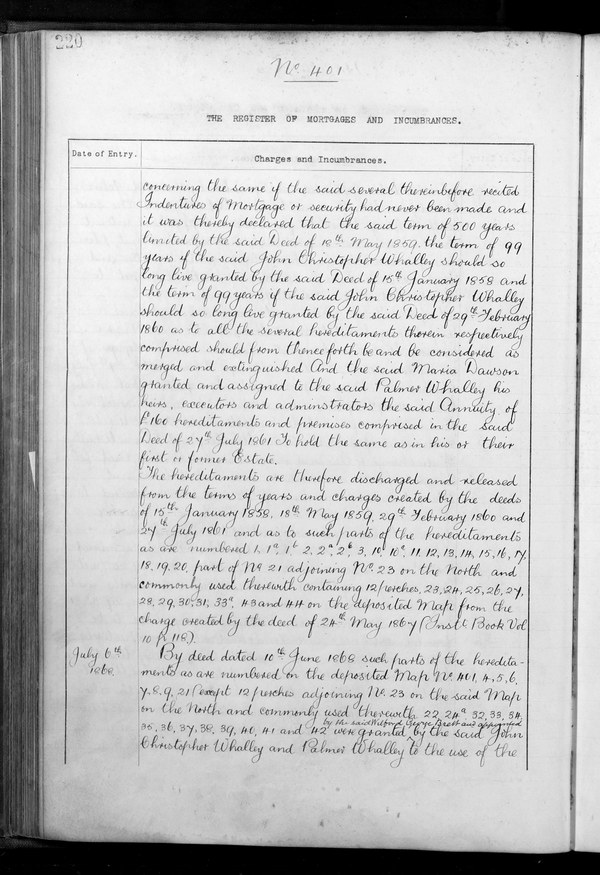 220
No. 401
THE REGISTER OF MORTGAGES AND INCUMBRANCES.
Date of Entry.
Charges and Incumbrances.
concerning the same if the said several thereinbefore recited
Indentures of Mortgage or security had never been made and
it was thereby declared that the said term of 500 years
limited by the said Deed of 18th May 1859 the term of 99
years if the said John Christopher Whalley should so
long live granted by the said Deed of 15th January 1858 and
the term of 99 years if the said John Christopher Whalley
should so long live granted by the said Deed of 29th February
1860 as to all the several hereditaments therein respectively
comprised should from thenceforth be and be considered as
merged and extinguished And the said Maria Dawson
granted and assigned to the said Palmer Whalley his
heirs, executors and adminstrators the said Annuity of
£160 hereditaments and premises comprised in the said
Deed of 27th July 1861 To hold the same as in his or their
first or former Estate.
The hereditaments are therefore discharged and released
from the terms of years and charges created by the deeds
of 15th January 1858, 18th May 1859, 29th February 1860 and
27th July 1861 and as to such parts of the hereditaments
as are numbered 1, 1a, 1b 2, 2a, 2b 3, 10, 10a, 11, 12, 13, 14, 15, 16, 17,
18, 19, 20, part of No 21 adjoining No. 23 on the North and
commonly used therewith containing 12 perches, 23, 24, 25, 26, 27,
28, 29, 30, 31, 33a, 43 and 44 on the deposited Map from the
charge created by the deed of 24th May 1867 (Inst. Book Vol
10 p. 118).
July 6th
1868
By deed dated 10th June 1868 such parts of the heredita-
ments as are numbered on the deposited Map No. 401, 4, 5, 6,
7, 8, 9, 21 (except 12 perches adjoining No. 23 on the said Map
on the North and commonly used therewith, 22, 24a, 32, 33, 34,
by the said Wilford George Brett and appointed
35, 36, 37, 38, 39, 40, 41 and 42 were granted by the said John
Christopher Whalley and Palmer Whalley to the use of the